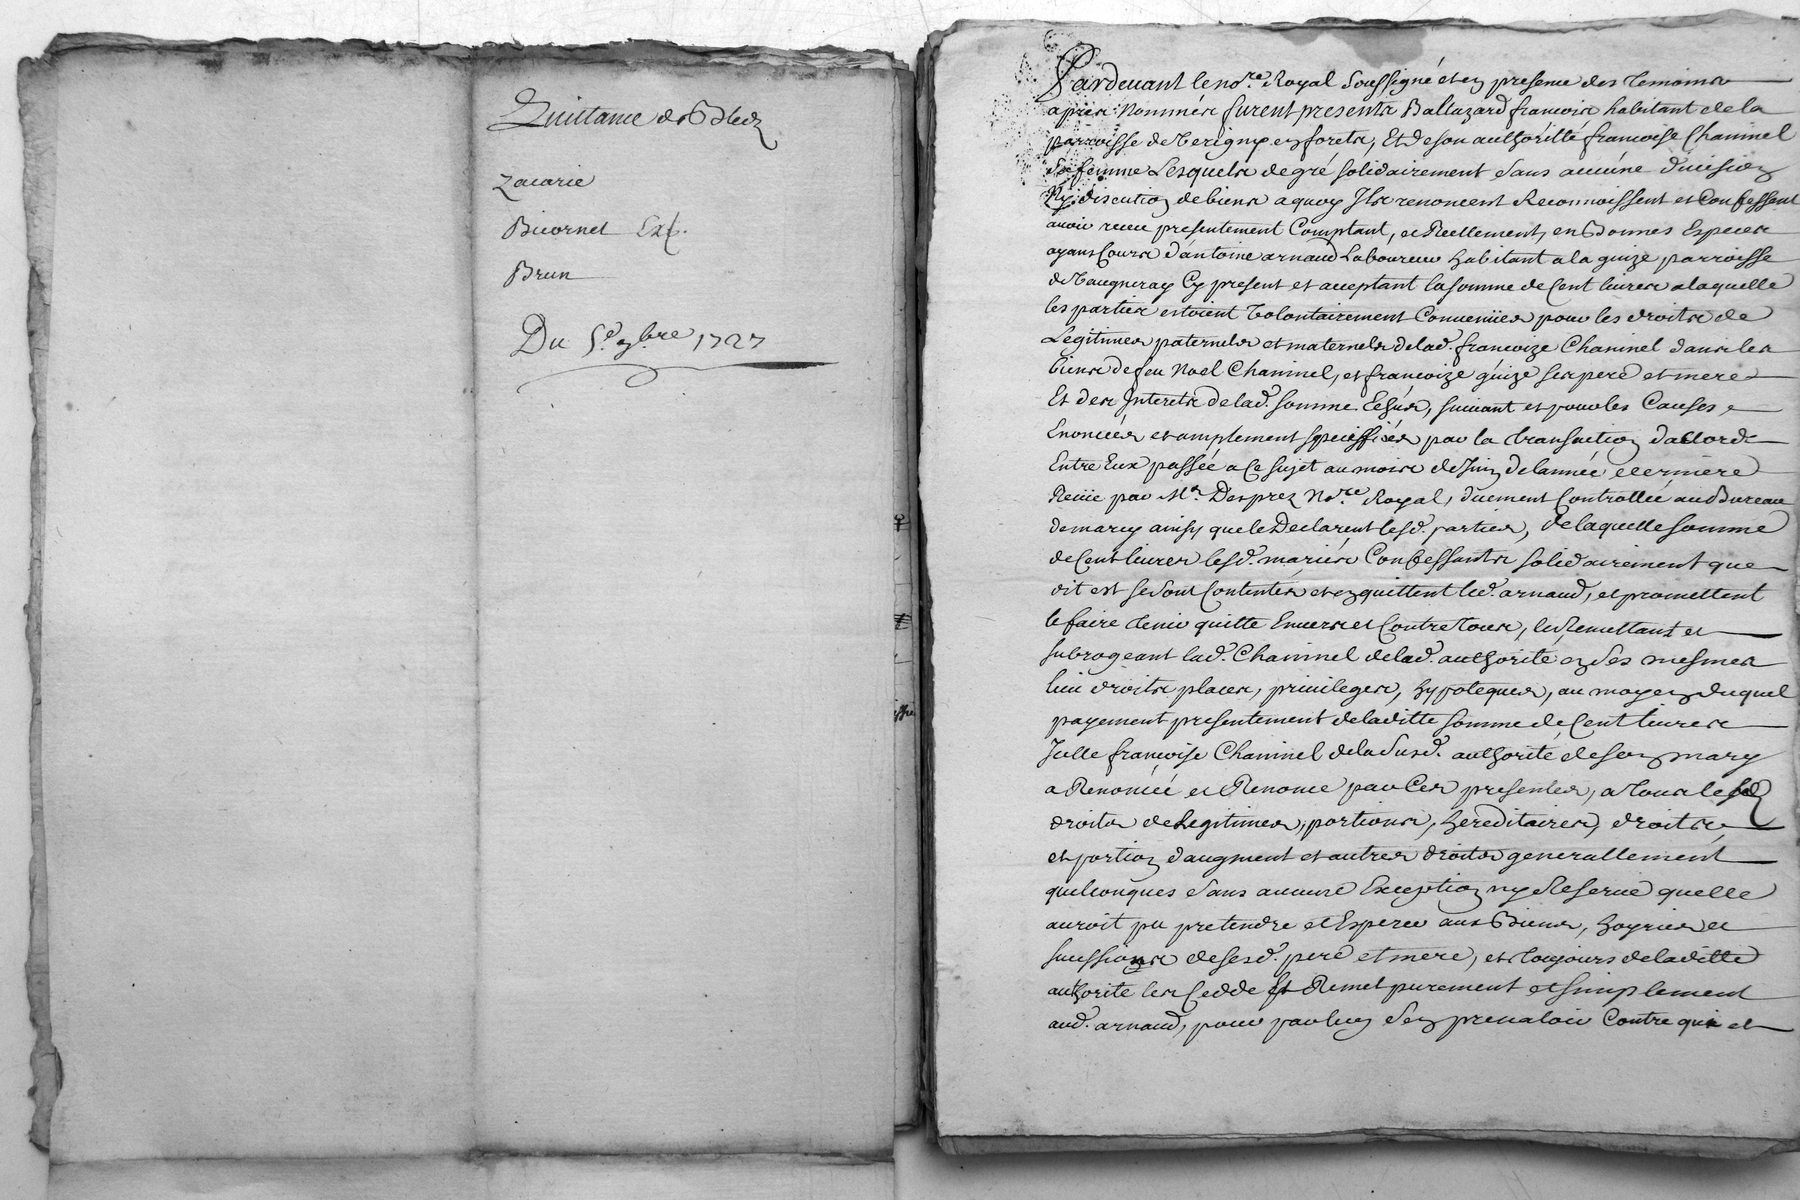 Quittance de
Zacarie
Bicornet
Brun
Du 5.e 7bre 1727
Pardevant le no.re Royal Soussigné et en presence des temoins
apres Nommés furent presents Baltazard francois habitant de la
parroisse de en forets, Et de son authoritté francoise Chaninel
Sa femme Lesquels de gré solidairement Sans aucune division
Ny discution de biens a quoy Ils renoncent Reconnoissent et Confessent
avoir receu presentement Comptant, et Reellement, en Bonnes Especes
ayans Cours d'antoine arnaud Laboureur habitant a la guize parroisse
de Vaugneray Cy present et acceptant la somme de Cent livres a laquelle
les parties estoient Volontairement Convenües pour les droits de
Legitimes paternels et maternels de lad. francoize Chaninel dans les
biens de feu Noel Chaninel, et francoize guize ses pere et mere
Et des Interets de lad. somme Echûs, suivant et pour les Causes
Enoncées et amplement speciffiées par la transaction d'accord
Entre Eux passée a Ce sujet au mois de Juin de l'année derniere
Receüe par Me. Desprez No.re Royal, düement Controllée au Bureau
de marcy ainsy que le Declarent lesd. parties, de laquelle somme
de Cent livres lesd. mariés Confessants solidairement que
dit est se sont Contentés et en quittent led. arnaud, et promettent
le faire tenir quitte Envers et Contre tous, le Remettant et
subrogeant lad. Chaninel de lad. authorité en Ses mesmes
lieu droits places, privileges, hypoteques, au moyen duquel
payement presentement de laditte somme de Cent livres
Icelle francoise Chaninel de la Susd. authorité de son mary
a Renoncé et Renonce par Ces presentes, a tous lesd
droits de Legitimes, portions, hereditaires, droits
et portion d'augment et autres droits generallement
quelconques Sans aucune Exception ny Reserve quelle
auroit pu pretendre et Esperer aux Biens, hoyries et
sucssions de sesd. pere et mere, et toujours de laditte
authorité les Cedde et Remet purement et simplement
aud. arnaud, pour par luy S'en prevaloir Contre qui et